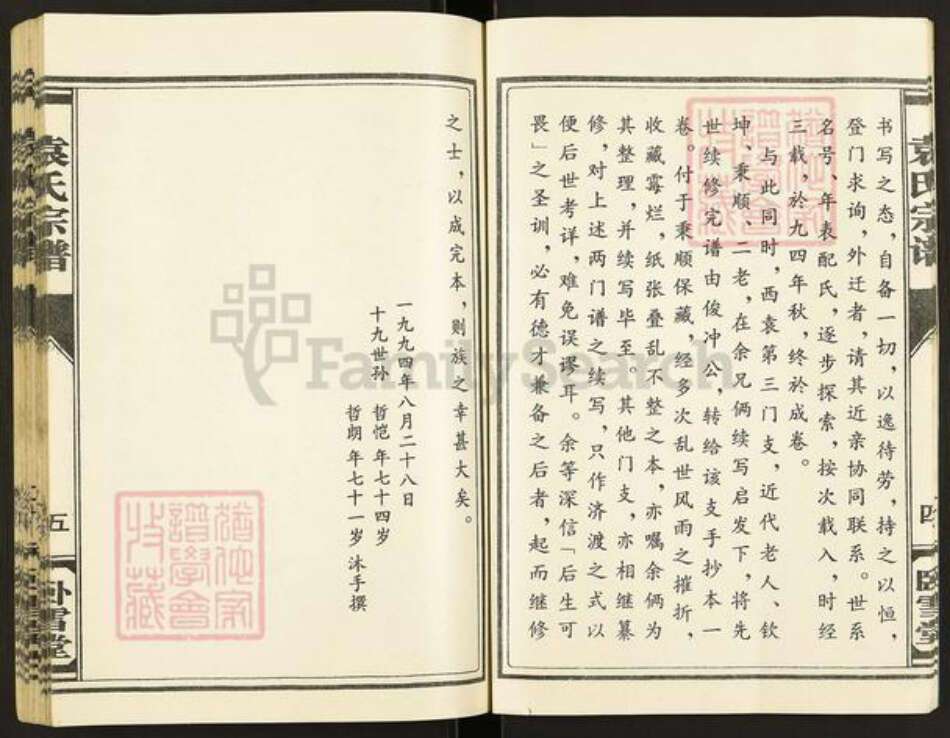 书写之态，自备一切，以逸待劳，持之以恒，
登门求询，外迁者，请其近亲协同联系。世系
名号、年表配氏，逐步探索，按次载入，时经
三载，於九四年秋，终於成卷。
与此同时，西袁第三门支，近代老人、钦
坤、秉顺、二老，在余兄俩续写启发下，将先
世续修完谱由俊冲公，转给该支手抄本一
卷。付于秉顺保藏，经多次乱世风雨之摧折，
收藏霉烂，纸张叠乱不整之本，亦嘱余俩为
其整理，并续写毕至。其他门支，亦相继纂
修，对上述两门谱之续写，只作济渡之式以
便后世考详，难免误谬耳。余等深信「后生可
畏」之圣训，必有德才兼备之后者，起而继修
之士，以成完本，则族之幸甚大矣。
一九九四年八月二十八日
十九世孙 哲恺 年七十四岁
哲朗 年七十一岁 沐手撰
袁氏宗谱
四
卧雪堂
袁氏宗谱
五
卧雪堂
FamilySearch